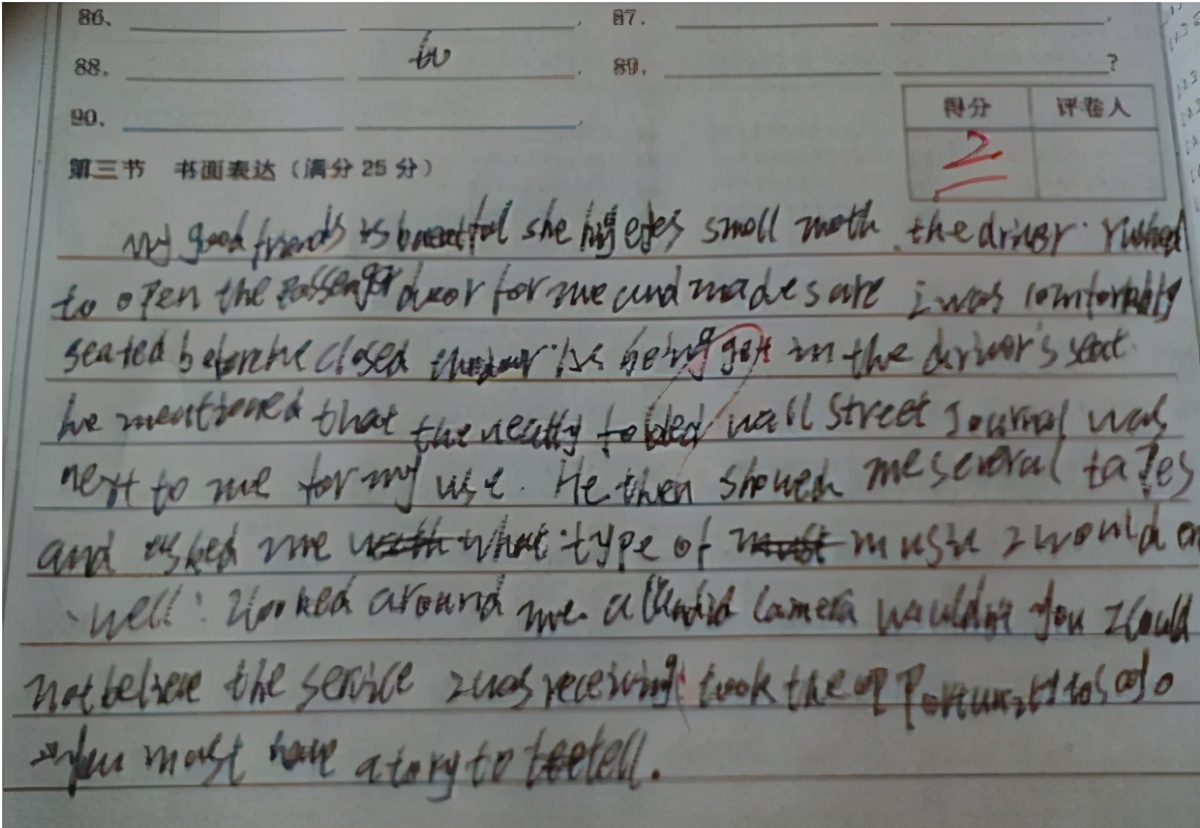 86、 . 87. .
88. to . 89. ?
90、 .
得分 评卷人
2
第三节 书面表达（满分 25 分）
My good friends is beautiful she big eyes small moth. the driver rushed
to open the passenger door for me and made sure i was comfortably
seated before he closed the door. As being get in the driver's seat.
he mentioned that the neatly folded wall street Journal was
next to me for my use. He then showed me several tapes
and asked me what type of music I would en
well! I looked around me. a candid camera wouldn't you I could
not believe the service I was receiving took the opportunity to so go
you must have a tory to tell.